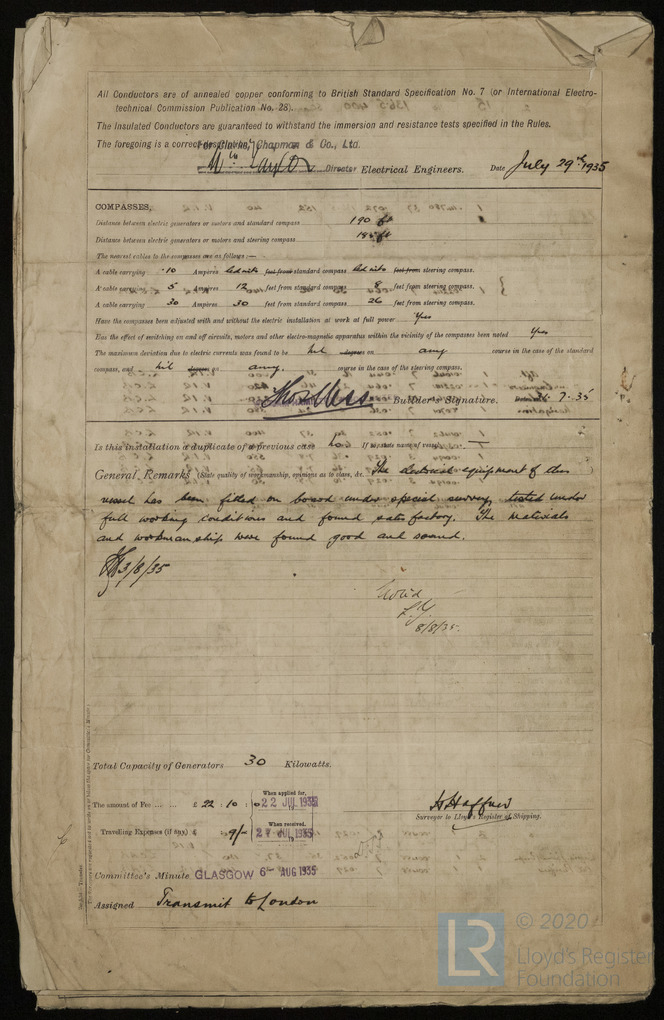 All Conductors are of annealed copper conforming to British Standard Specification No. 7 (or International Electro-
technical Commission Publication No. 28).
The Insulated Conductors are guaranteed to withstand the immersion and resistance tests specified in the Rules.
The foregoing is a correct description,
For Clarke, Chapman & Co., Ltd.
Director Electrical Engineers. Date July 29th 1935
COMPASSES.
Distance between electric generators or motors and standard compass 190 ft
Distance between electric generators or motors and steering compass 185 ft
The nearest cables to the compasses are as follows :—
A cable carrying .10 Ampères led into feet from standard compass led into feet from steering compass.
A cable carrying 5 Ampères 12 feet from standard compass 8 feet from steering compass.
A cable carrying 30 Ampères 30 feet from standard compass 26 feet from steering compass.
Have the compasses been adjusted with and without the electric installation at work at full power Yes
Has the effect of switching on and off circuits, motors and other electro-magnetic apparatus within the vicinity of the compasses been noted Yes
The maximum deviation due to electric currents was found to be nil degrees on any course in the case of the standard
compass, and nil degrees on any. course in the case of the steering compass.
Builder's Signature. 7.35
Is this installation a duplicate of a previous case no If so, state name of vessel —
General Remarks (State quality of workmanship, opinions as to class, &c. The electrical equipment of this
vessel has been fitted on board under special survey, tested under
full working conditions and found satisfactory. The materials
and workmanship were found good and sound.
3/8/35
8/8/35.
Total Capacity of Generators 30 Kilowatts.
The amount of Fee ... ... £ 22 : 10 : 0 When applied for, 22 JUL 1935
Travelling Expenses (if any) £ 9/- When received,
JUL 1935
Surveyor to Lloyd's Register of Shipping.
Committee's Minute GLASGOW 6 AUG 1935
Assigned Transmit to London
LR
© 2020
Lloyd's Register
Foundation